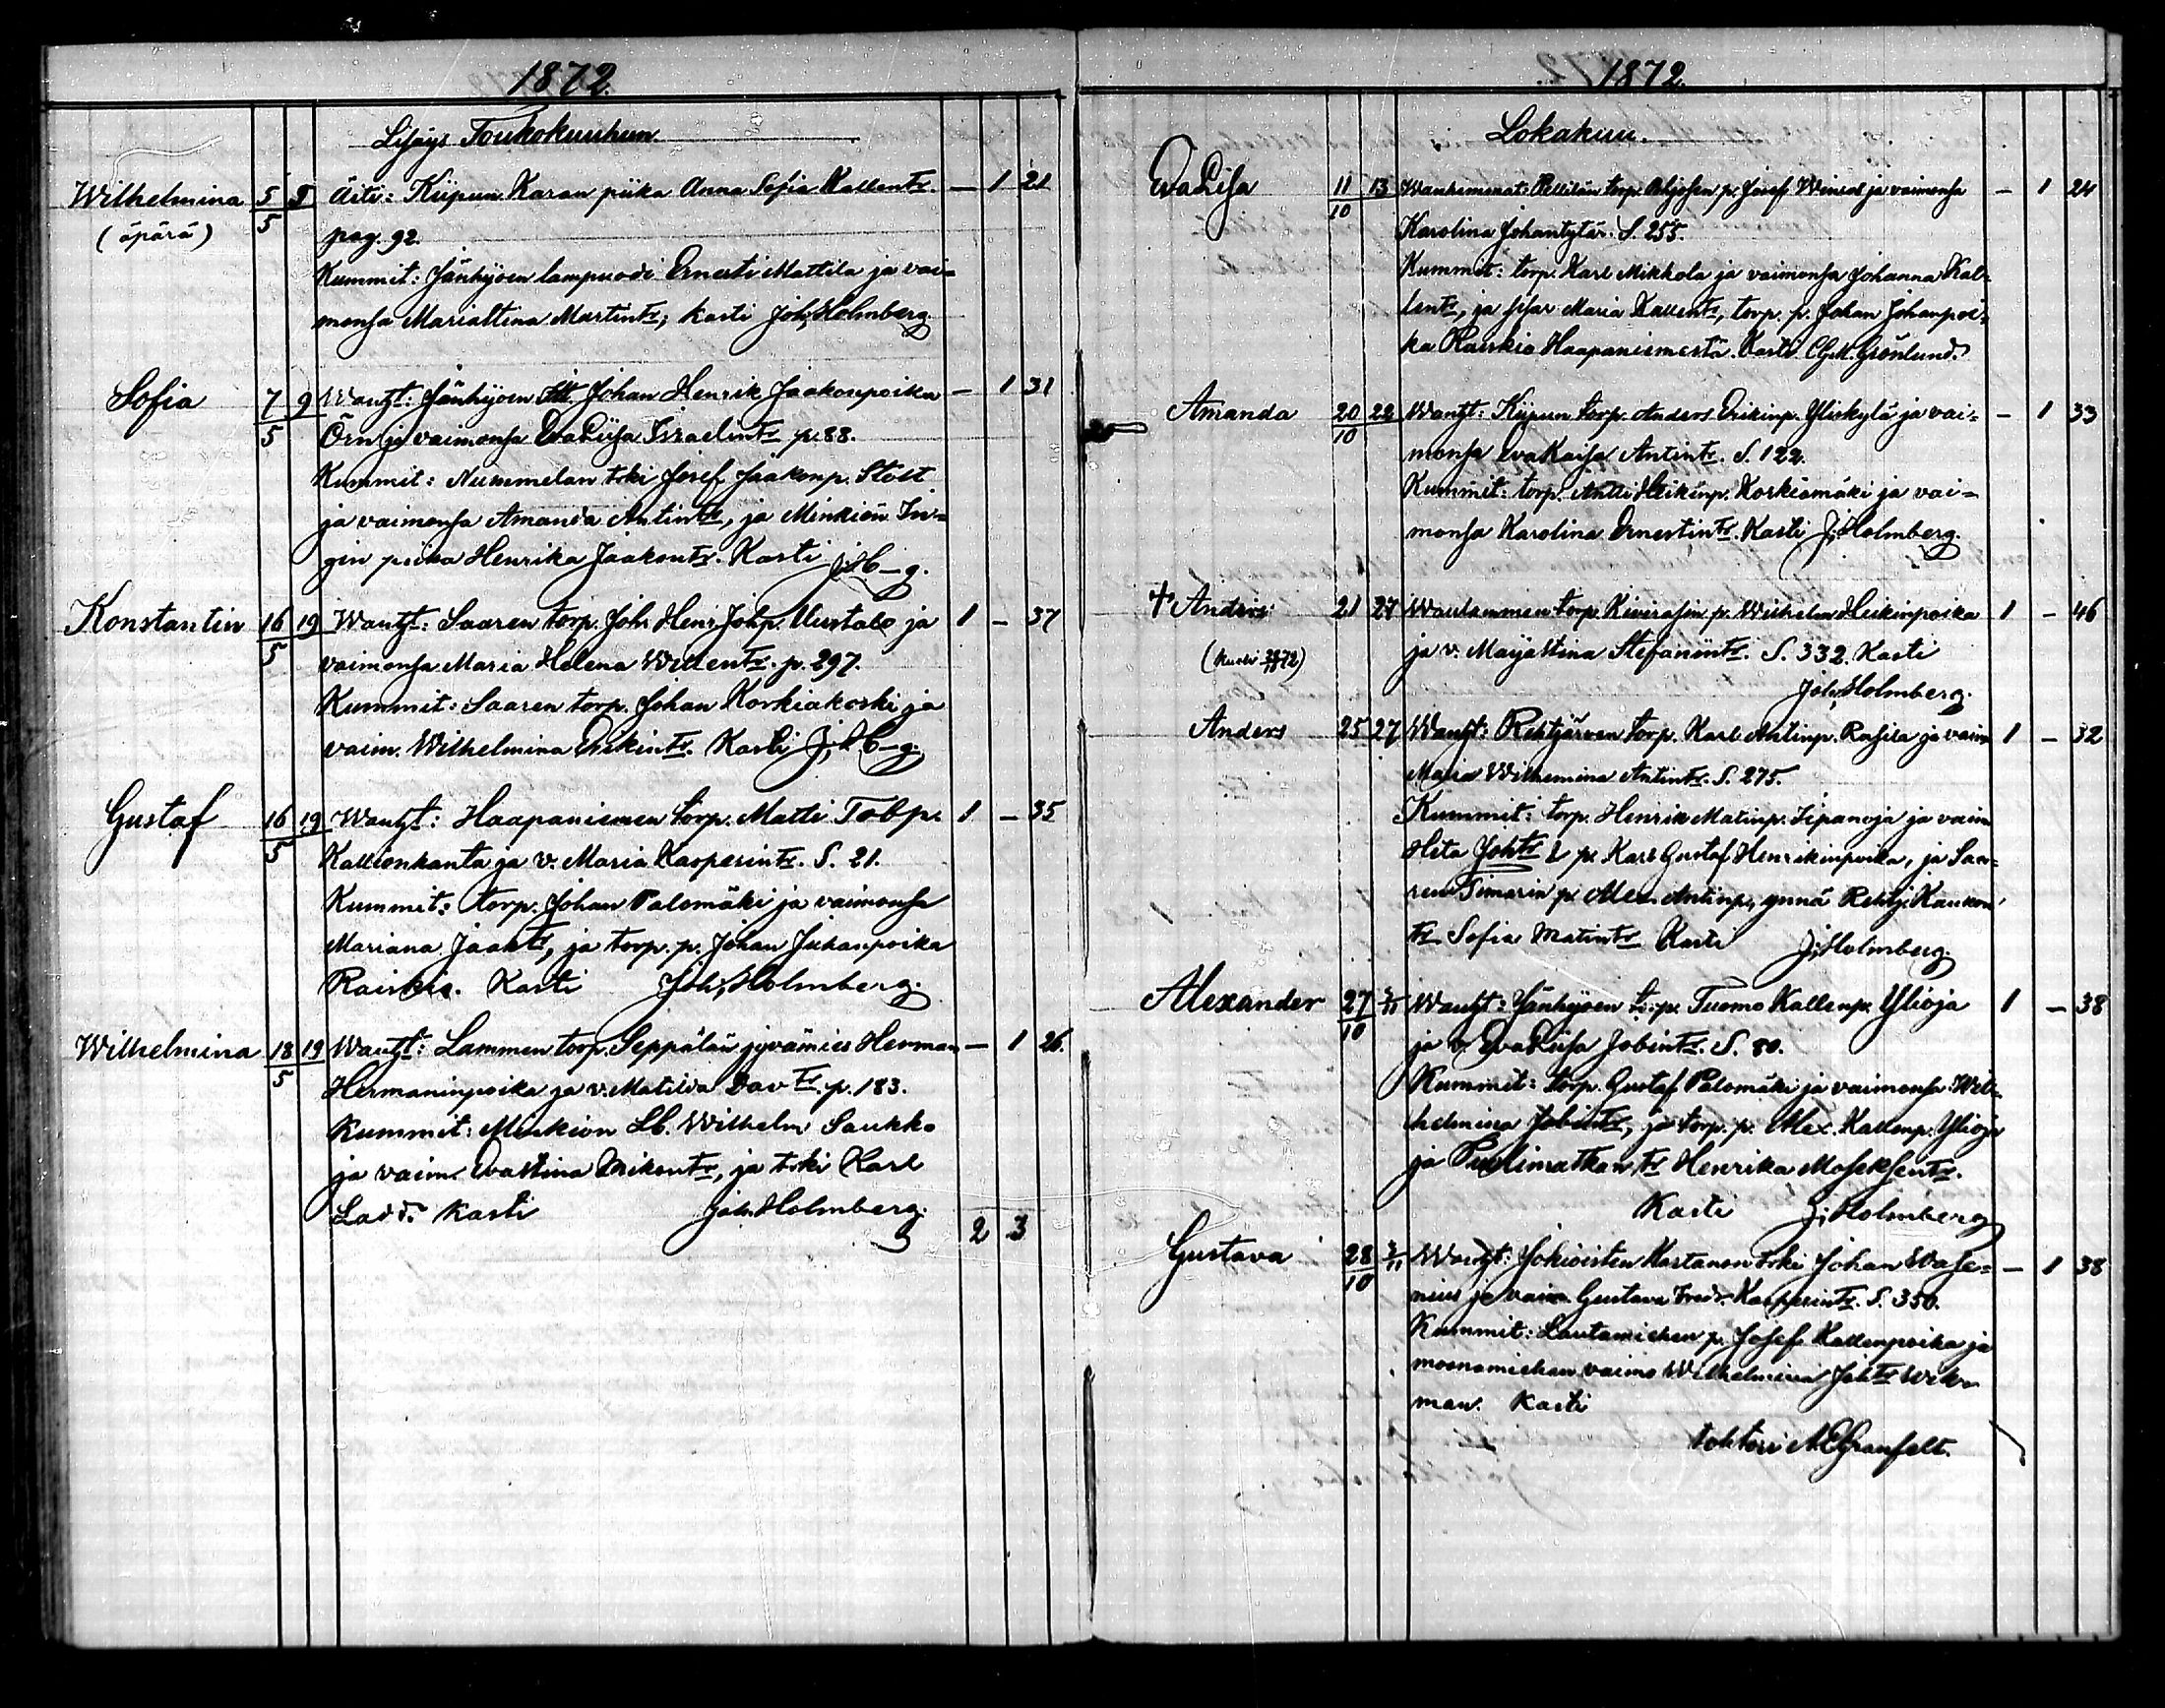 1872.
Lisäys Toukokuuhun.
Wilhelmina 5/5 5 Äiti: Kiipun Karan piika Anna Sofia Kallentr — 1 21
(äpärä) pag. 92.
Kummit: Jänhijoen lampuodi Ernesti Mattila ja vai=
monsa Mariastina Martintr; kasti Joh. Holmberg.
Sofia 7/5 9 Wanht: Jänhijoen Johan Henrik Jaakonpoika — 1 31
Örn ja vaimonsa Eva Liisa Israelintr p. 88.
Kummit: Nummelan trki Josef Jaakonp. Stolt
ja vaimonsa Amanda Antintr, ja Minkiön In=
gin piika Henrika Jaakontr. Kasti J. H—g.
Konstantin 16/5 19 Wanht: Saaren torp. Joh. Henr. Johp. Uustalo ja 1 — 37
vaimonsa Maria Helena Willentr. p. 297.
Kummit: Saaren torp. Johan Korkiakoski ja
vaim. Wilhelmina Erkintr. Kasti J. H—g.
Gustaf 16/5 19 Wanht: Haapaniemen torp. Matti Tobp. 1 — 35
Kallionkanta ja v. Maria Kasperintr. S. 21.
Kummit: torp. Johan Palomäki ja vaimonsa
Mariana Jaaktr, ja torp. p. Johan Juhanpoika
Raiskio. Kasti Joh. Holmberg.
Wilhelmina 18/5 19 Wanht: Lammen torp. Seppälän jyvämies Herman — 1 26.
Hermaninpoika ja v. Matilda Davtr. p. 183.
Kummit: Minkiön Lb. Wilhelm Saukko
ja vaim. Evastina Mikontr, ja trki Karl
Ladd. Kasti Joh. Holmberg.
2 3
1872.
Lokakuu.
Eva Lisa 11/10 13 Wanhemmat: Pellilän torp. Pohjosen p. Josef Winroos ja vaimonsa — 1 24
Karolina Johantytär. S. 255.
Kummit: torp. Karl Mikkola ja vaimonsa Johanna Kal=
lentr, ja sisar Maria Kallentr, torp. p. Johan Johanpoi=
ka Raiskio Haapaniemestä. Kasti Grönlund.
Amanda 20/10 22 Wanht: Kiipun torp. Anders Erikinp. Yliskylä ja vai= — 1 33
monsa Eva Kaisa Antintr. S. 122.
Kummit: torp. Antti Heikinp. Koskiomäki ja vai=
monsa Karolina Ernestintr. Kasti J. Holmberg.
† Anders 21 27 Waulammen torp. Kivirasin p. Wilhelm Heikinpoika 1 — 46
ja v. Maijastina Stefanintr. S. 332. Kasti
Joh. Holmberg.
Anders 25 27 Wanht: Rehtijärven torp. Karl Antinp. Rasila ja vaim 1 — 32
Maria Wilhemina Antintr. S. 275.
Kummit: torp. Henrik Matinp. Sipanoja ja vaim
Heta Johtr & p. Karl Gustaf Henrikinpoika, ja Saa=
ren Timarin p. Alex. Antinp., ynnä Rehtj. Kaukon
tr Sofia Matintr Kasti J. Holmberg.
Alexander 27/10 3/11 Wanht: Jänhijoen torp. Tuomo Kallenp. Ylioja 1 — 38
ja v. Eva Liisa Jobintr. S. 80.
Kummit: torp. Gustaf Palomäki ja vaimonsa Wil=
helmina Jobintr, ja torp. p. Alex. Kallenp. Ylioja
ja Puolimatkan tr Henrika Moseksentr.
Kasti J. Holmberg
Gustava 28/10 3/11 Wanht: Jokioisten Kartanon trki Johan Wase= — 1 38
nius ja vaim. Gustava Fred. Kasperintr. S. 350.
Kummit: Lautamiehen p. Josef Kallenpoika ja
moonamiehen vaimo Wilhelmina Johtr Wek=
man. Kasti
tohtori A. E. Granfelt.